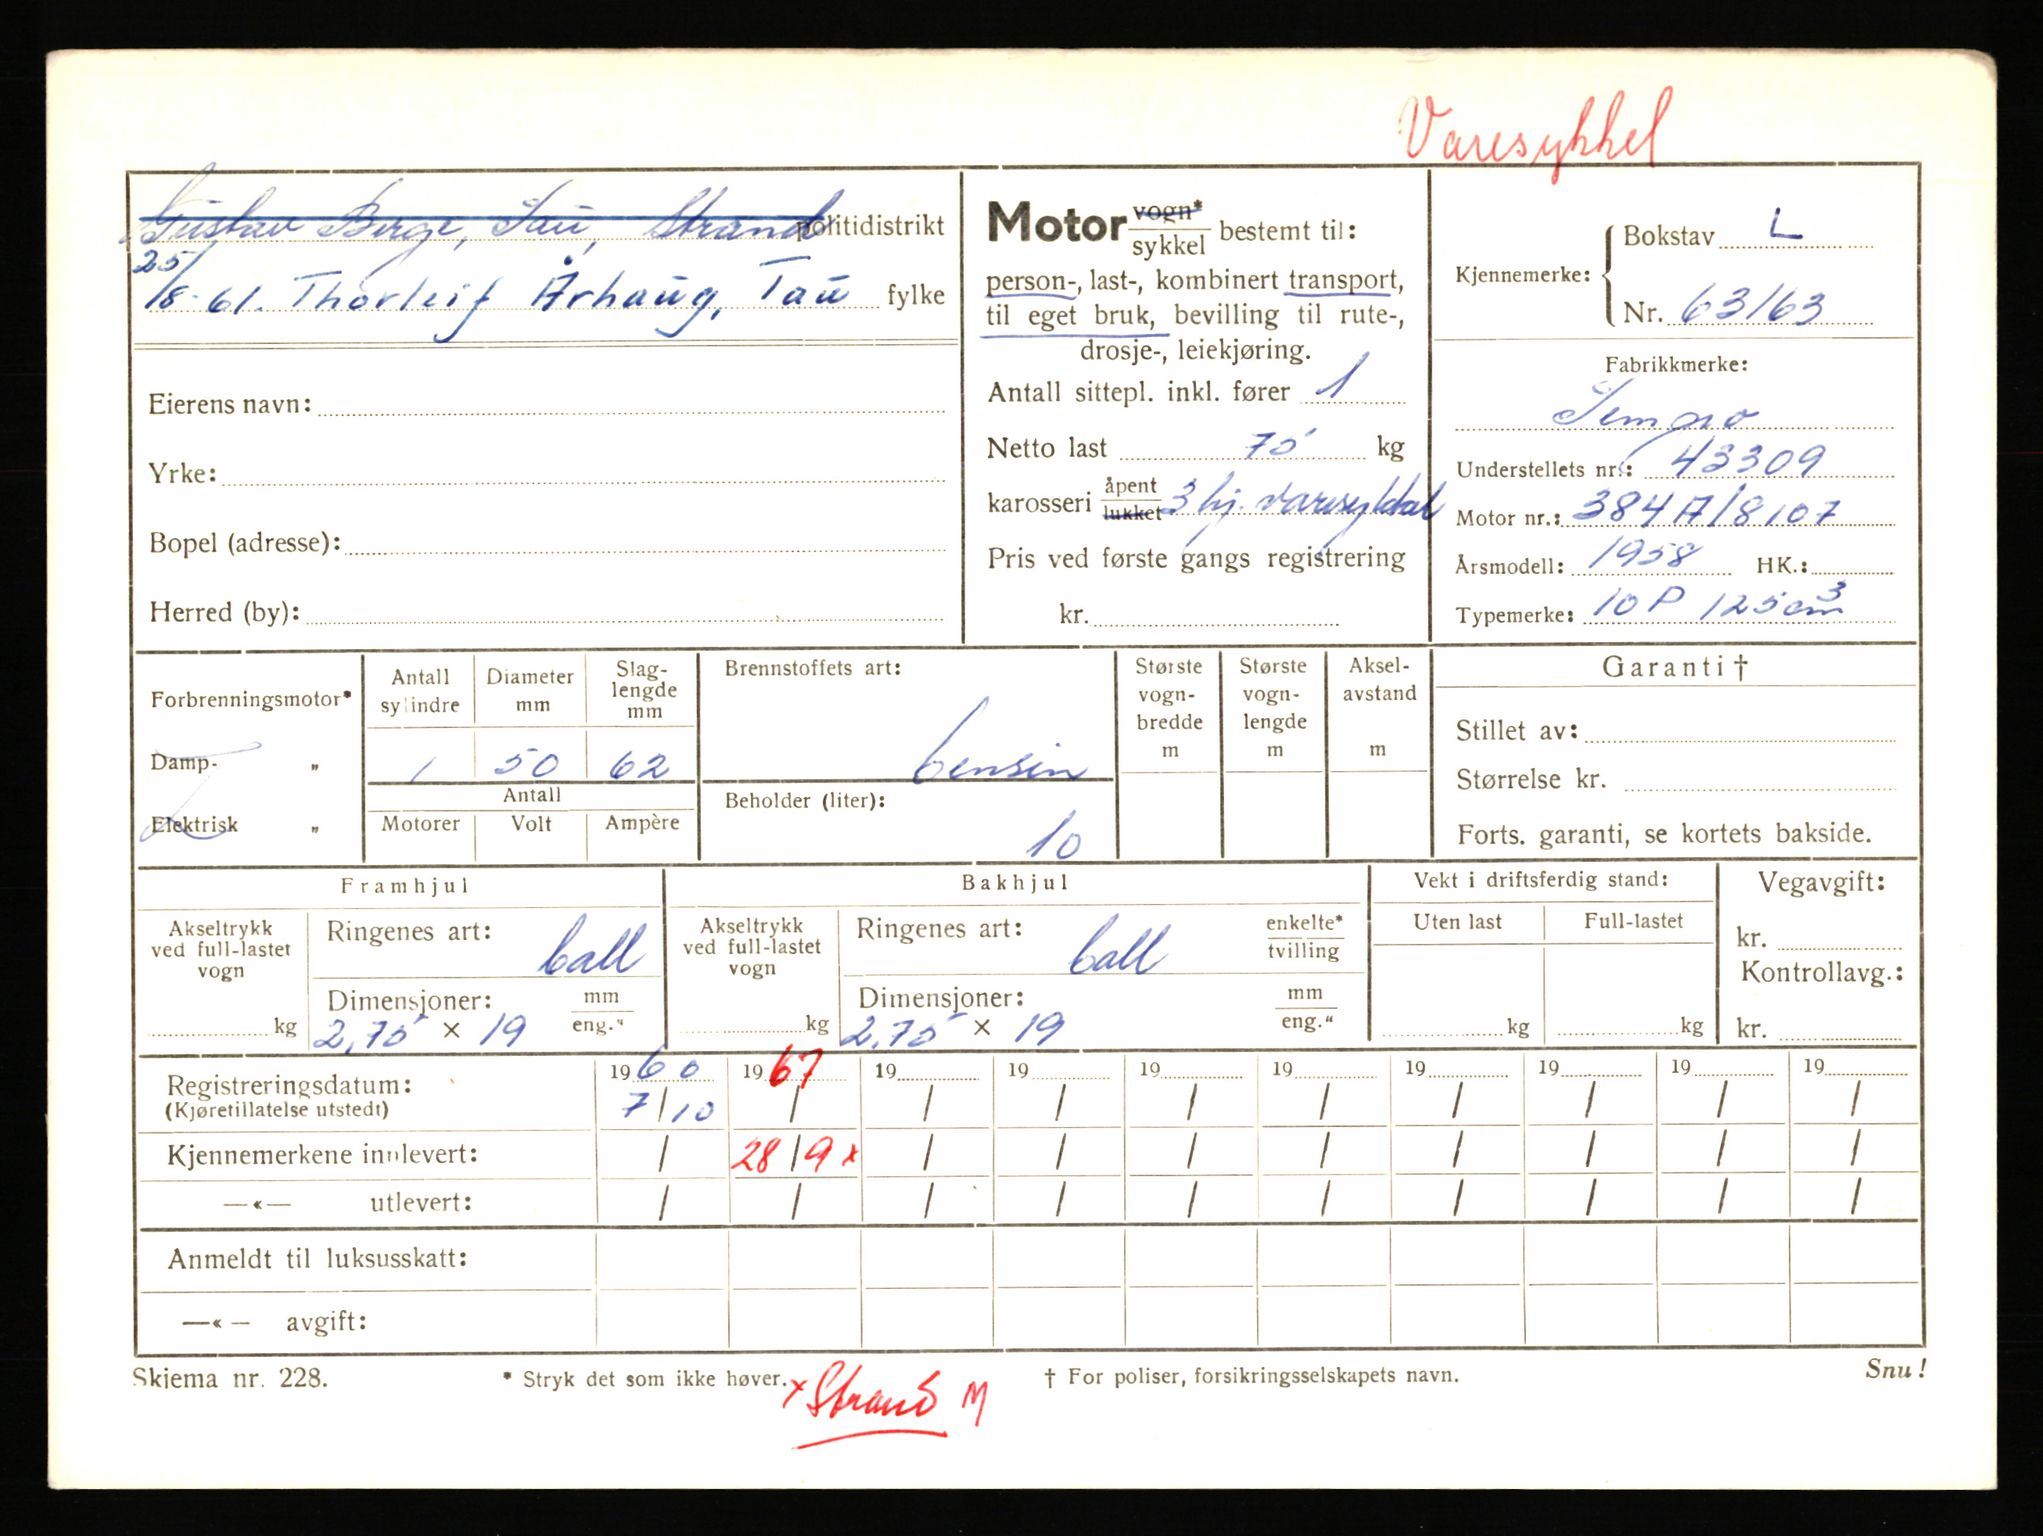 Varesykkel
Gustav Berge, Tau, Strand politidistrikt
25/8-61. Thorleif Århaug, Tau fylke
Eierens navn:
Yrke:
Bopel (adresse):
Herred (by):
Motor vogn* / sykkel bestemt til:
person-, last-, kombinert transport,
til eget bruk, bevilling til rute-,
drosje-, leiekjøring.
Antall sittepl. inkl. fører 1
Netto last 75 kg
karosseri åpent / lukket 3 hj. varesykkel
Pris ved første gangs registrering
kr.
Kjennemerke: Bokstav L
Nr. 63163
Fabrikkmerke:
Tempo
Understellets nr.: 43309
Motor nr.: 384A/8107
Årsmodell: 1958 HK.:
Typemerke: 10 P 125 cm3
Forbrenningsmotor*
Damp- „
Elektrisk „
Antall sylindre
Diameter mm
Slag-lengde mm
1 50 62
Antall
Motorer Volt Ampère
Brennstoffets art:
bensin
Beholder (liter):
10
Største vogn-bredde m
Største vogn-lengde m
Aksel-avstand m
Garanti †
Stillet av:
Størrelse kr.
Forts. garanti, se kortets bakside.
Framhjul
Akseltrykk ved full-lastet vogn
kg
Ringenes art:
ball
Dimensjoner: mm / eng."
2,75 × 19
Bakhjul
Akseltrykk ved full-lastet vogn
kg
Ringenes art: enkelte* / tvilling
ball
Dimensjoner: mm / eng."
2,75 × 19
Vekt i driftsferdig stand:
Uten last Full-lastet
kg kg
Vegavgift:
kr.
Kontrollavg.:
kr.
Registreringsdatum: 1960 1967 19 19 19 19 19 19 19 19
(Kjøretillatelse utstedt) 7/10 / / / / / / / / /
Kjennemerkene innlevert: / 28/9 x / / / / / / / /
—«— utlevert: / / / / / / / / / /
Anmeldt til luksusskatt:
—«— avgift:
Skjema nr. 228. * Stryk det som ikke høver. † For poliser, forsikringsselskapets navn. Snu!
x Strand M